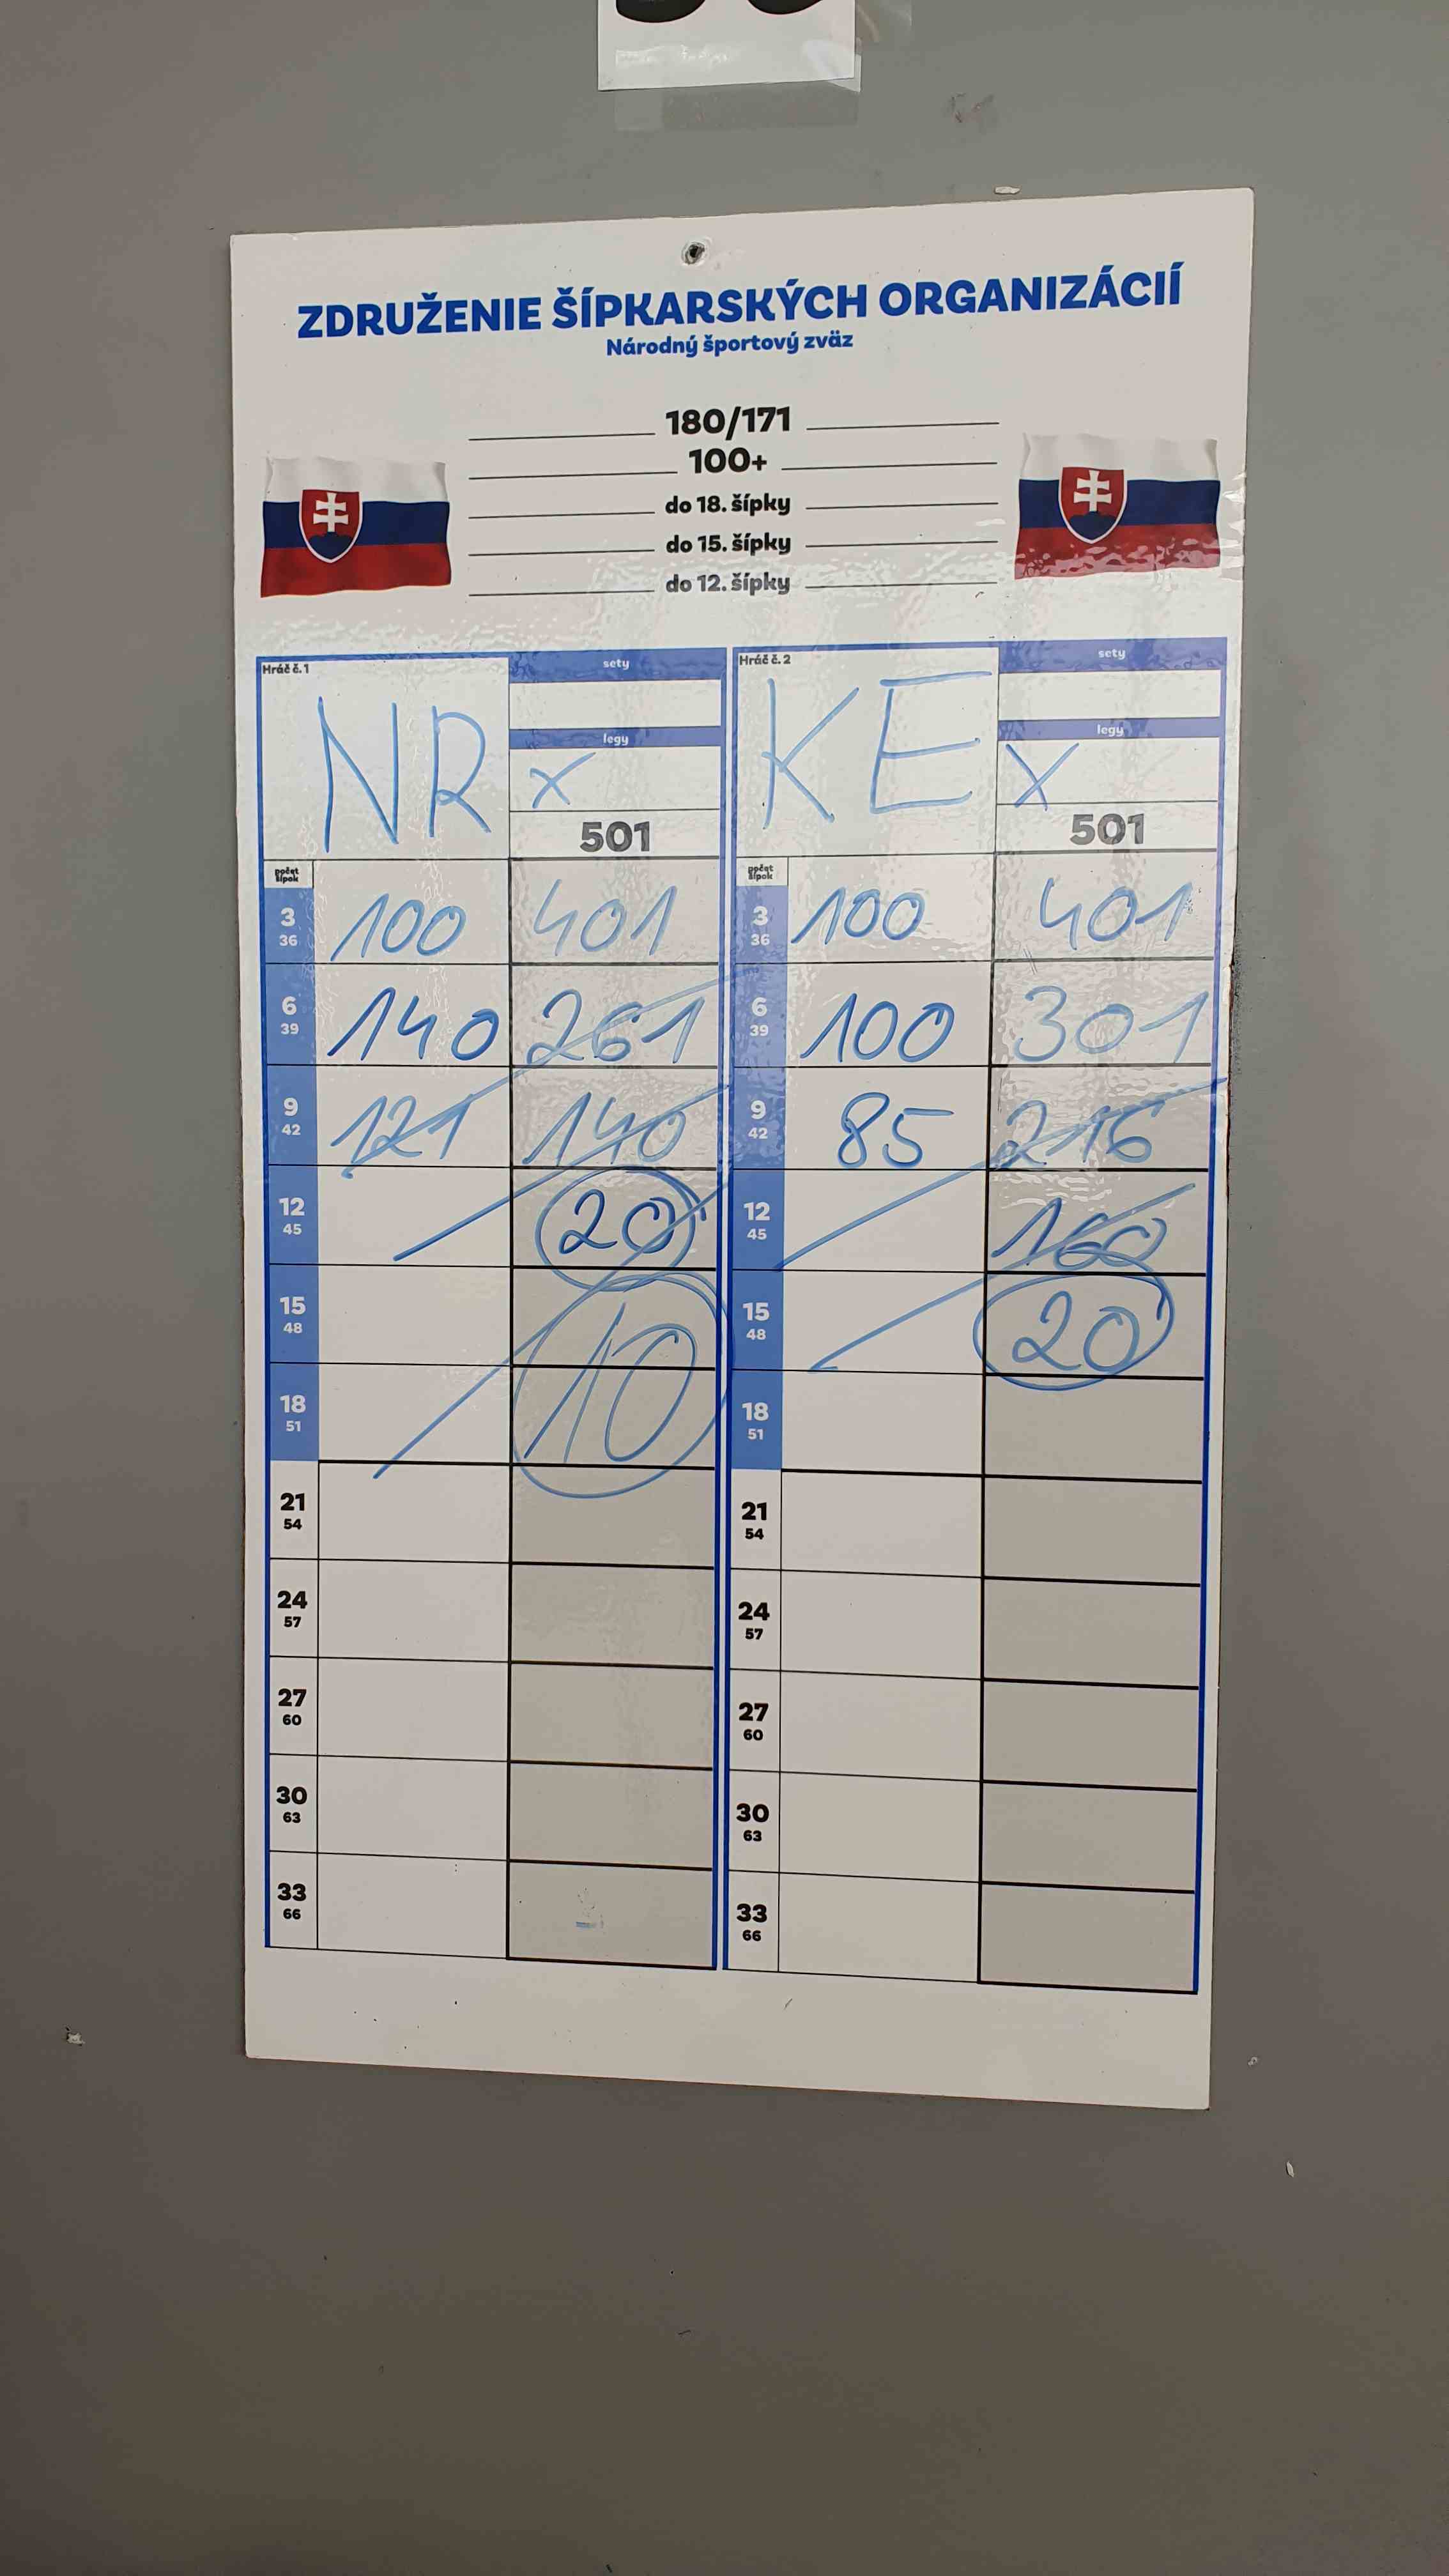 ZDRUŽENIE ŠÍPKARSKÝCH ORGANIZÁCIÍ
Národný športový zväz
180/171
100+
do 18. šípky
do 15. šípky
do 12. šípky
Hráč č. 1 sety Hráč č. 2 sety
NR legy KE legy
X X
501 501
počet šípok počet šípok
3 36 100 401 3 36 100 401
6 39 140 261 6 39 100 301
9 42 121 140 9 42 85 216
12 45 20 12 45 160
15 48 10 15 48 20
18 51 18 51
21 54 21 54
24 57 24 57
27 60 27 60
30 63 30 63
33 66 33 66